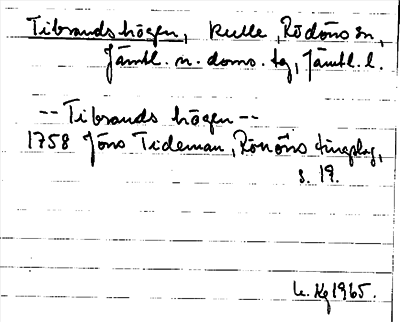 Tibrandshögen, kulle, Rödöns sn,
Jämtl. n. doms. tg, Jämtl. l.
-- Tibrands högen --
1758 Jöns Tideman, Röd̈öns tingslag,
s. 19.
1965.